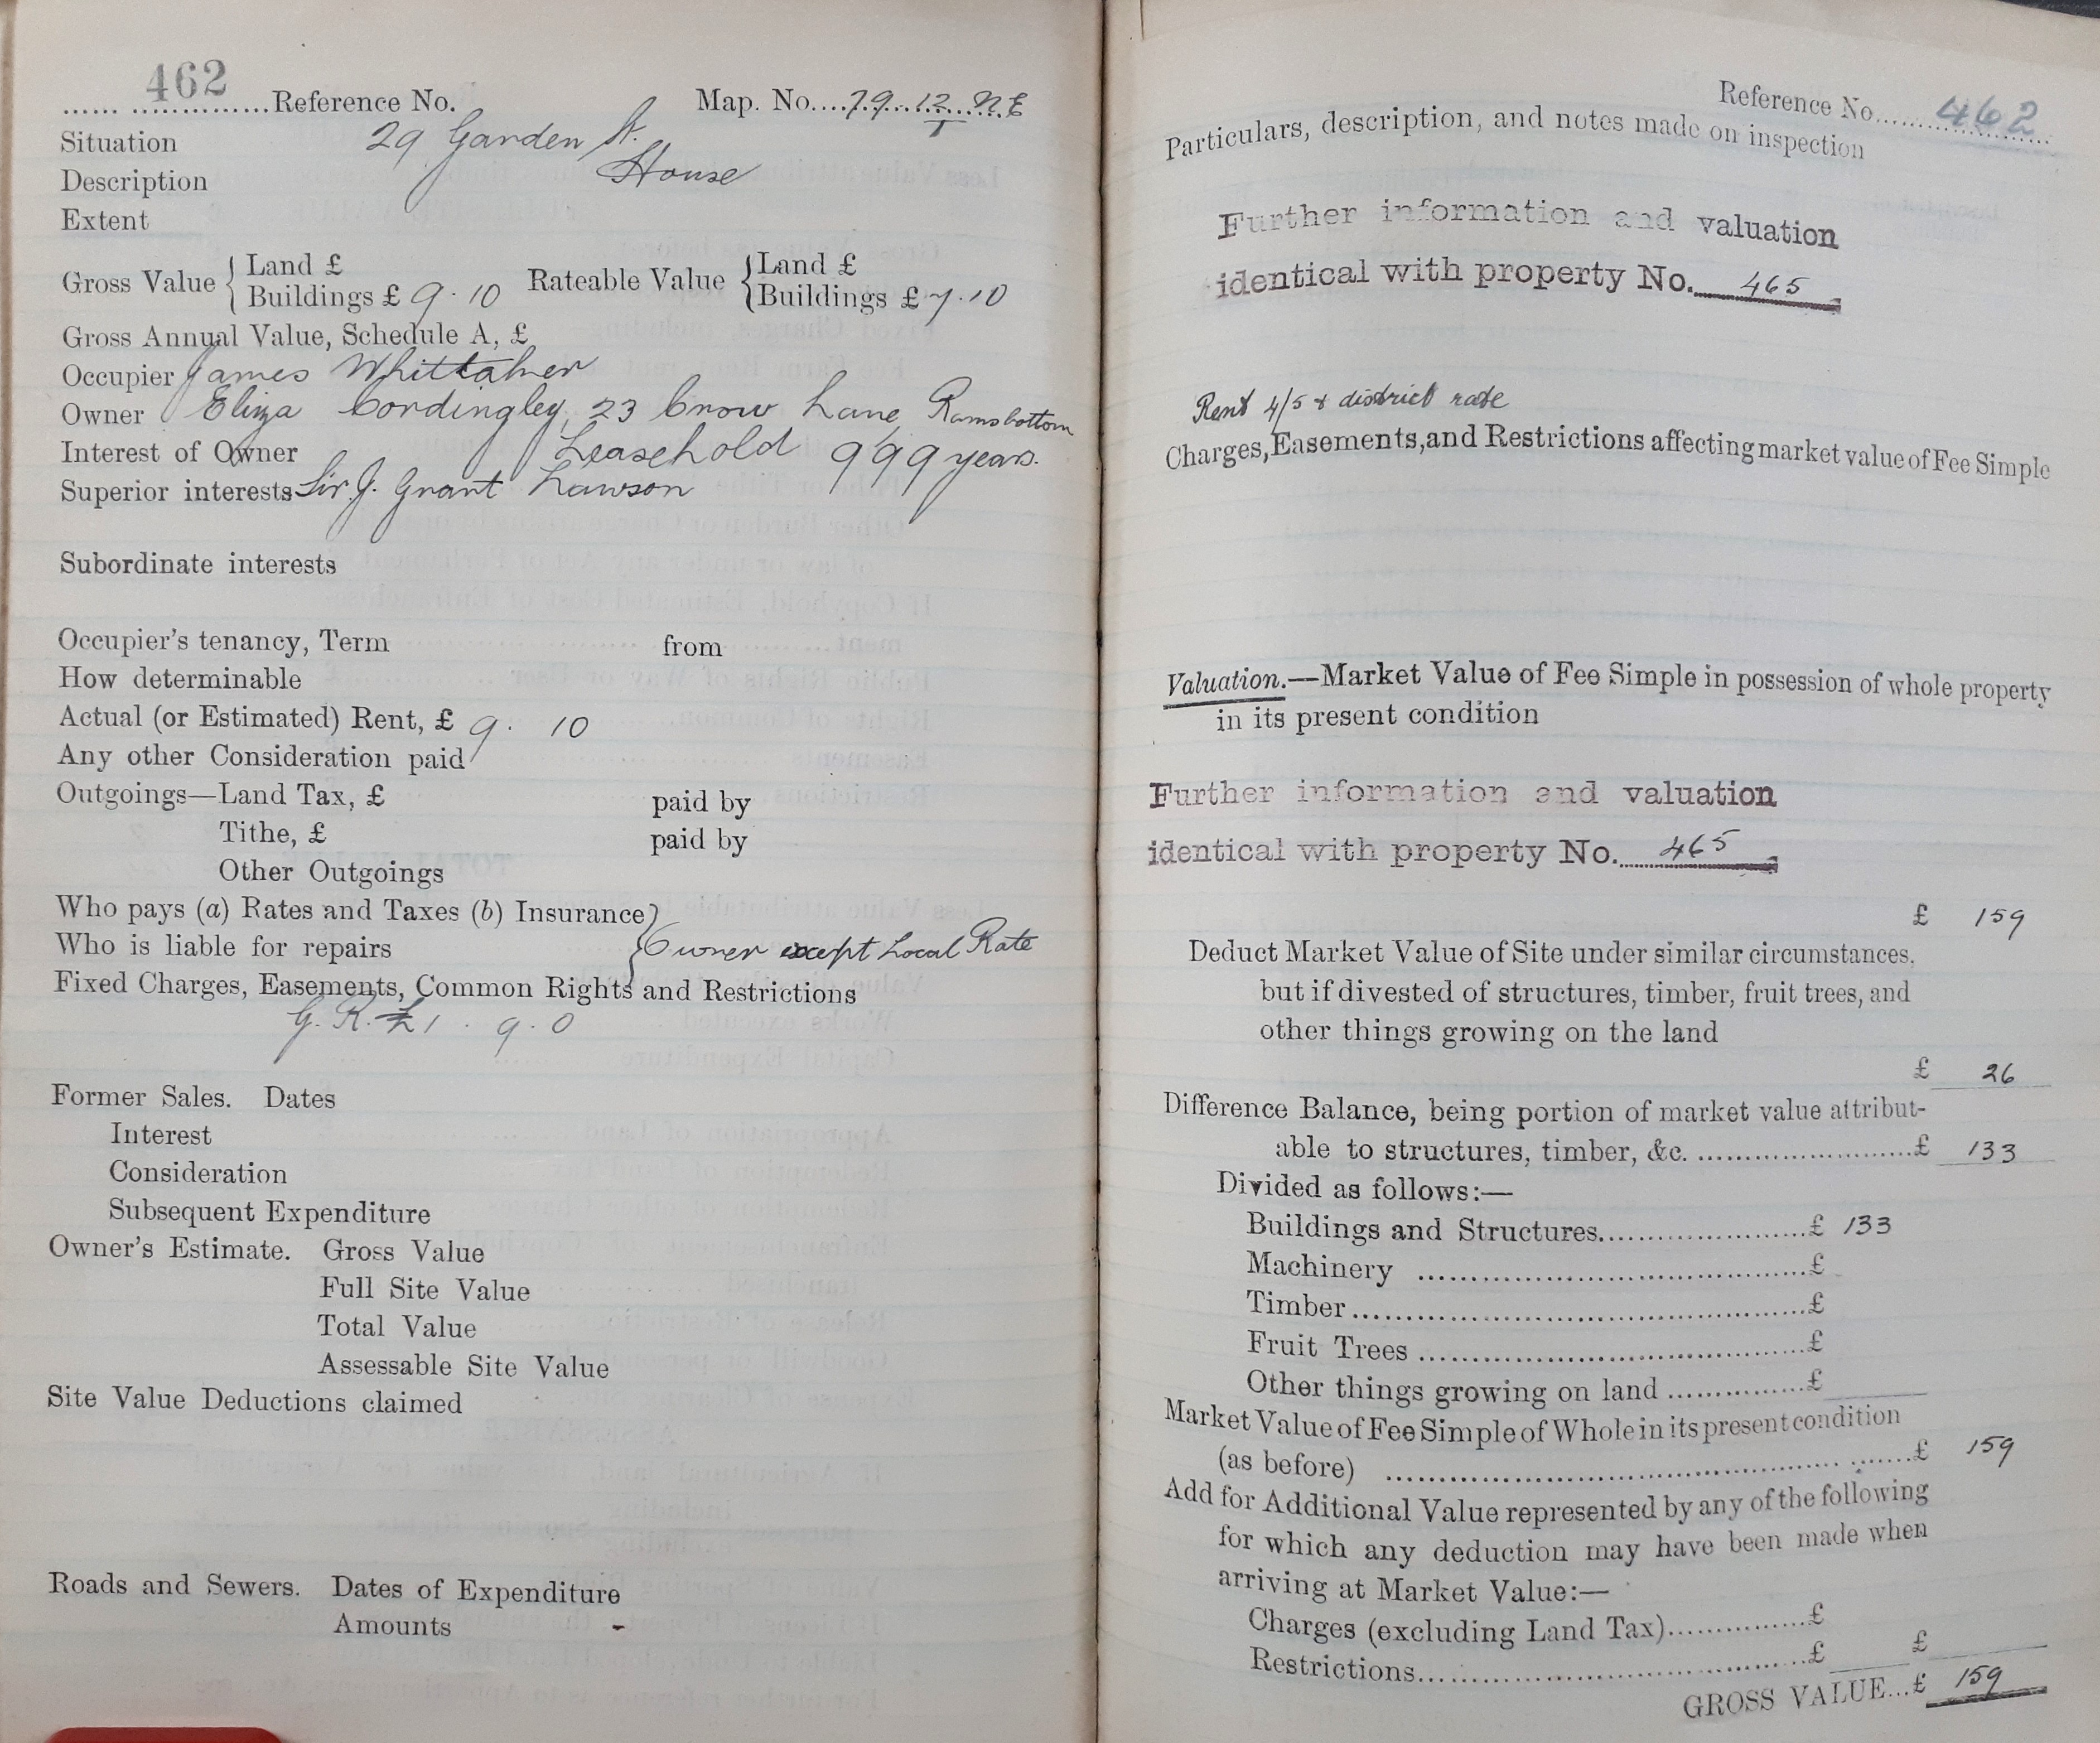 462 Reference No. Map. No. 79.12 N E
T
Situation 29 Garden St.
Description House
Extent
Gross Value { Land £ Rateable Value { Land £
Buildings £ 9.10 Buildings £ 7.10
Gross Annual Value, Schedule A, £
Occupier James Whittaker
Owner Eliza Cordingley, 23 Crow Lane, Ramsbottom
Interest of Owner Leasehold 999 years.
Superior interests Sir J. Grant Lawson
Subordinate interests
Occupier's tenancy, Term from
How determinable
Actual (or Estimated) Rent, £ 9. 10
Any other Consideration paid
Outgoings—Land Tax, £ paid by
Tithe, £ paid by
Other Outgoings
Who pays (a) Rates and Taxes (b) Insurance }
Who is liable for repairs } Owner except Local Rate
Fixed Charges, Easements, Common Rights and Restrictions
G. R. £1 . 9. 0
Former Sales. Dates
Interest
Consideration
Subsequent Expenditure
Owner's Estimate. Gross Value
Full Site Value
Total Value
Assessable Site Value
Site Value Deductions claimed
Roads and Sewers. Dates of Expenditure
Amounts -
Reference No. 462
Particulars, description, and notes made on inspection
Further information and valuation
identical with property No. 465
Rent 4/5 & district rate
Charges, Easements, and Restrictions affecting market value of Fee Simple
Valuation.—Market Value of Fee Simple in possession of whole property
in its present condition
Further information and valuation
identical with property No. 465
£ 159
Deduct Market Value of Site under similar circumstances,
but if divested of structures, timber, fruit trees, and
other things growing on the land
£ 26
Difference Balance, being portion of market value attribut-
able to structures, timber, &c. £ 133
Divided as follows:—
Buildings and Structures £ 133
Machinery £
Timber £
Fruit Trees £
Other things growing on land £
Market Value of Fee Simple of Whole in its present condition
(as before) £ 159
Add for Additional Value represented by any of the following
for which any deduction may have been made when
arriving at Market Value:—
Charges (excluding Land Tax) £
Restrictions £ £
GROSS VALUE...£ 159